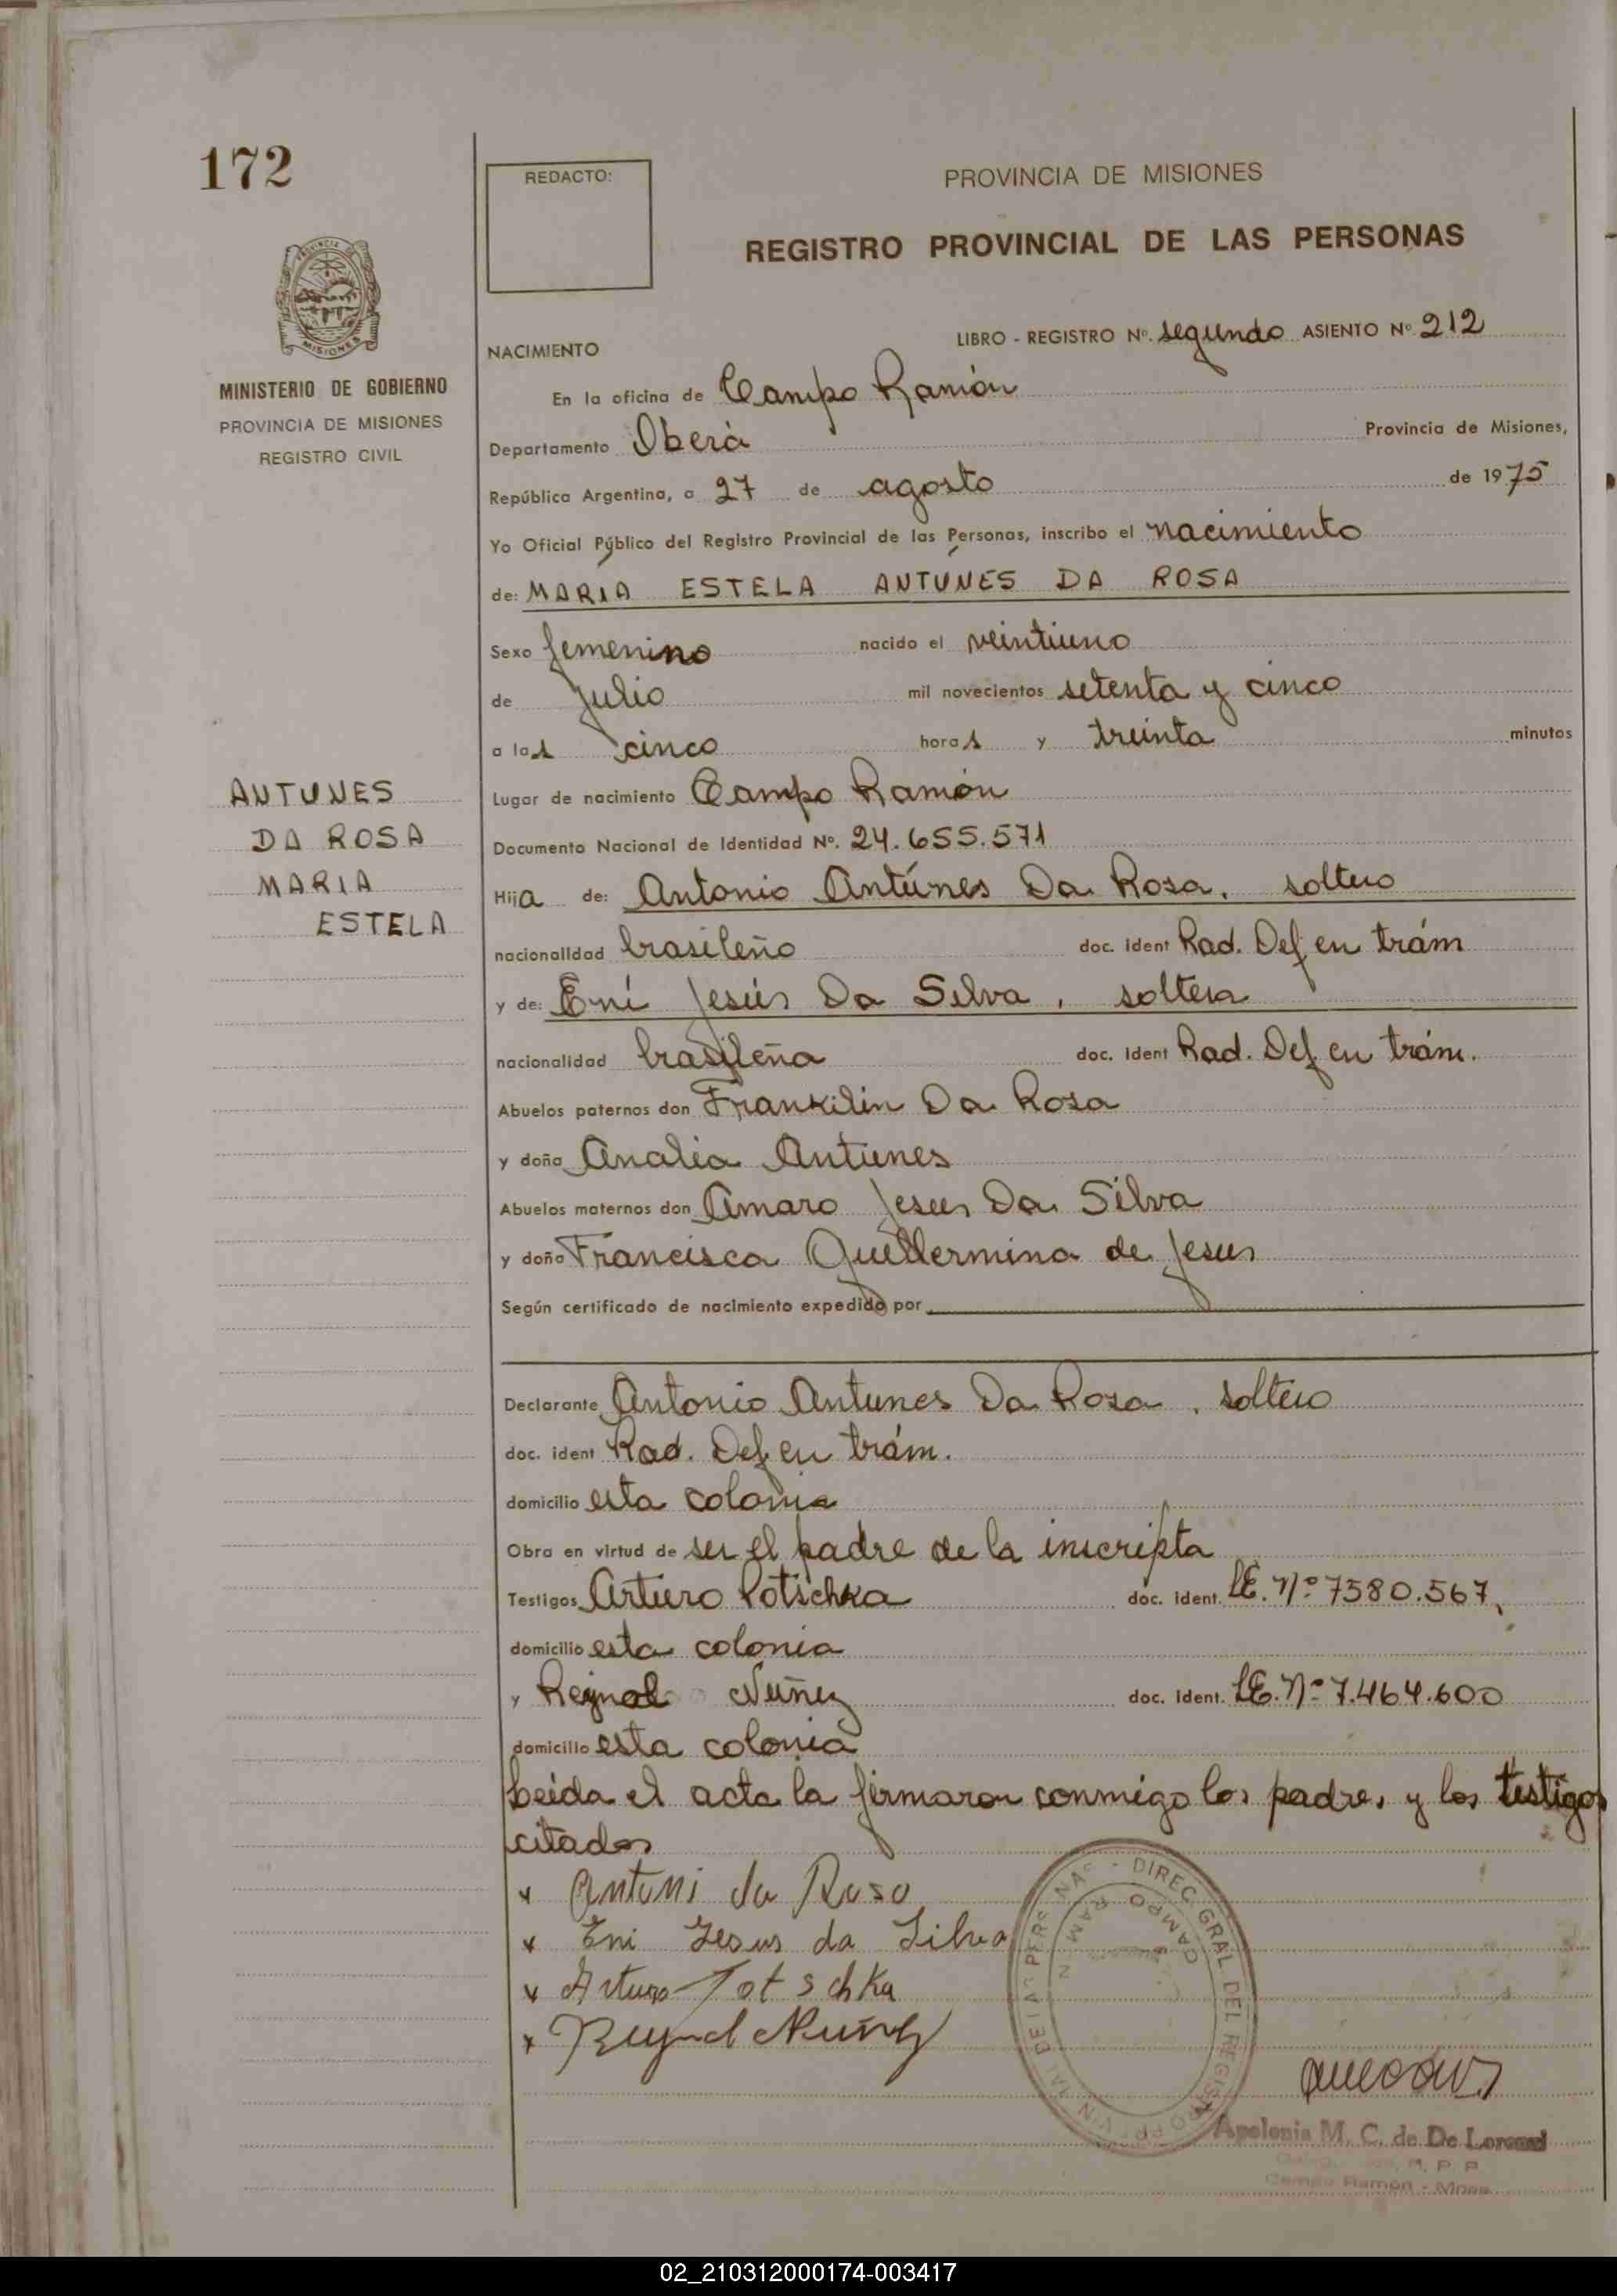 172
PROVINCIA DE MISIONES
MINISTERIO DE GOBIERNO
PROVINCIA DE MISIONES
REGISTRO CIVIL
ANTUNES
DA ROSA
MARIA
ESTELA
REDACTO:
PROVINCIA DE MISIONES
REGISTRO PROVINCIAL DE LAS PERSONAS
LIBRO - REGISTRO Nº. segundo ASIENTO Nº 212
NACIMIENTO
En la oficina de Campo Ramón
Departamento Oberá Provincia de Misiones,
República Argentina, a 27 de agosto de 1975
Yo Oficial Público del Registro Provincial de las Personas, inscribo el nacimiento
de: MARIA ESTELA ANTUNES DA ROSA
Sexo femenino nacido el veintiuno
de Julio mil novecientos setenta y cinco
a las cinco horas y treinta minutos
Lugar de nacimiento Campo Ramón
Documento Nacional de Identidad Nº. 24.655.571
Hija de: Antonio Antúnes Da Rosa, soltero
nacionalidad brasileño doc. ident Rad. Def en trám
y de: Ení Jesús Da Silva, soltera
nacionalidad brasileña doc. ident Rad. Def en trám.
Abuelos paternos don Frankilin Da Rosa
y doña Analia Antunes
Abuelos maternos don Amaro Jesus Da Silva
y doña Francisca Guillermina de Jesus
Según certificado de nacimiento expedido por
Declarante Antonio Antunes Da Rosa, soltero
doc. ident Rad. Def en trám.
domicilio esta colonia
Obra en virtud de ser el padre de la inscripta
Testigos Arturo Potschka doc. ident. LE. Nº 7580.567,
domicilio esta colonia
y Reynol Nuñez doc. ident. LE. Nº 7.464.600
domicilio esta colonia
Leida el acta la firmaron conmigo los padres y los testigos
citados
x Antoni da Roso
x Eni Jesus da Silva
x Arturo Potschka
x Reynol Nuñez
DIREC. GRAL DEL REGIST
CAMPO RAM N
Apolonia M. C. de De Lorenzi
Campo Ramón - Mnes.
02_210312000174-003417